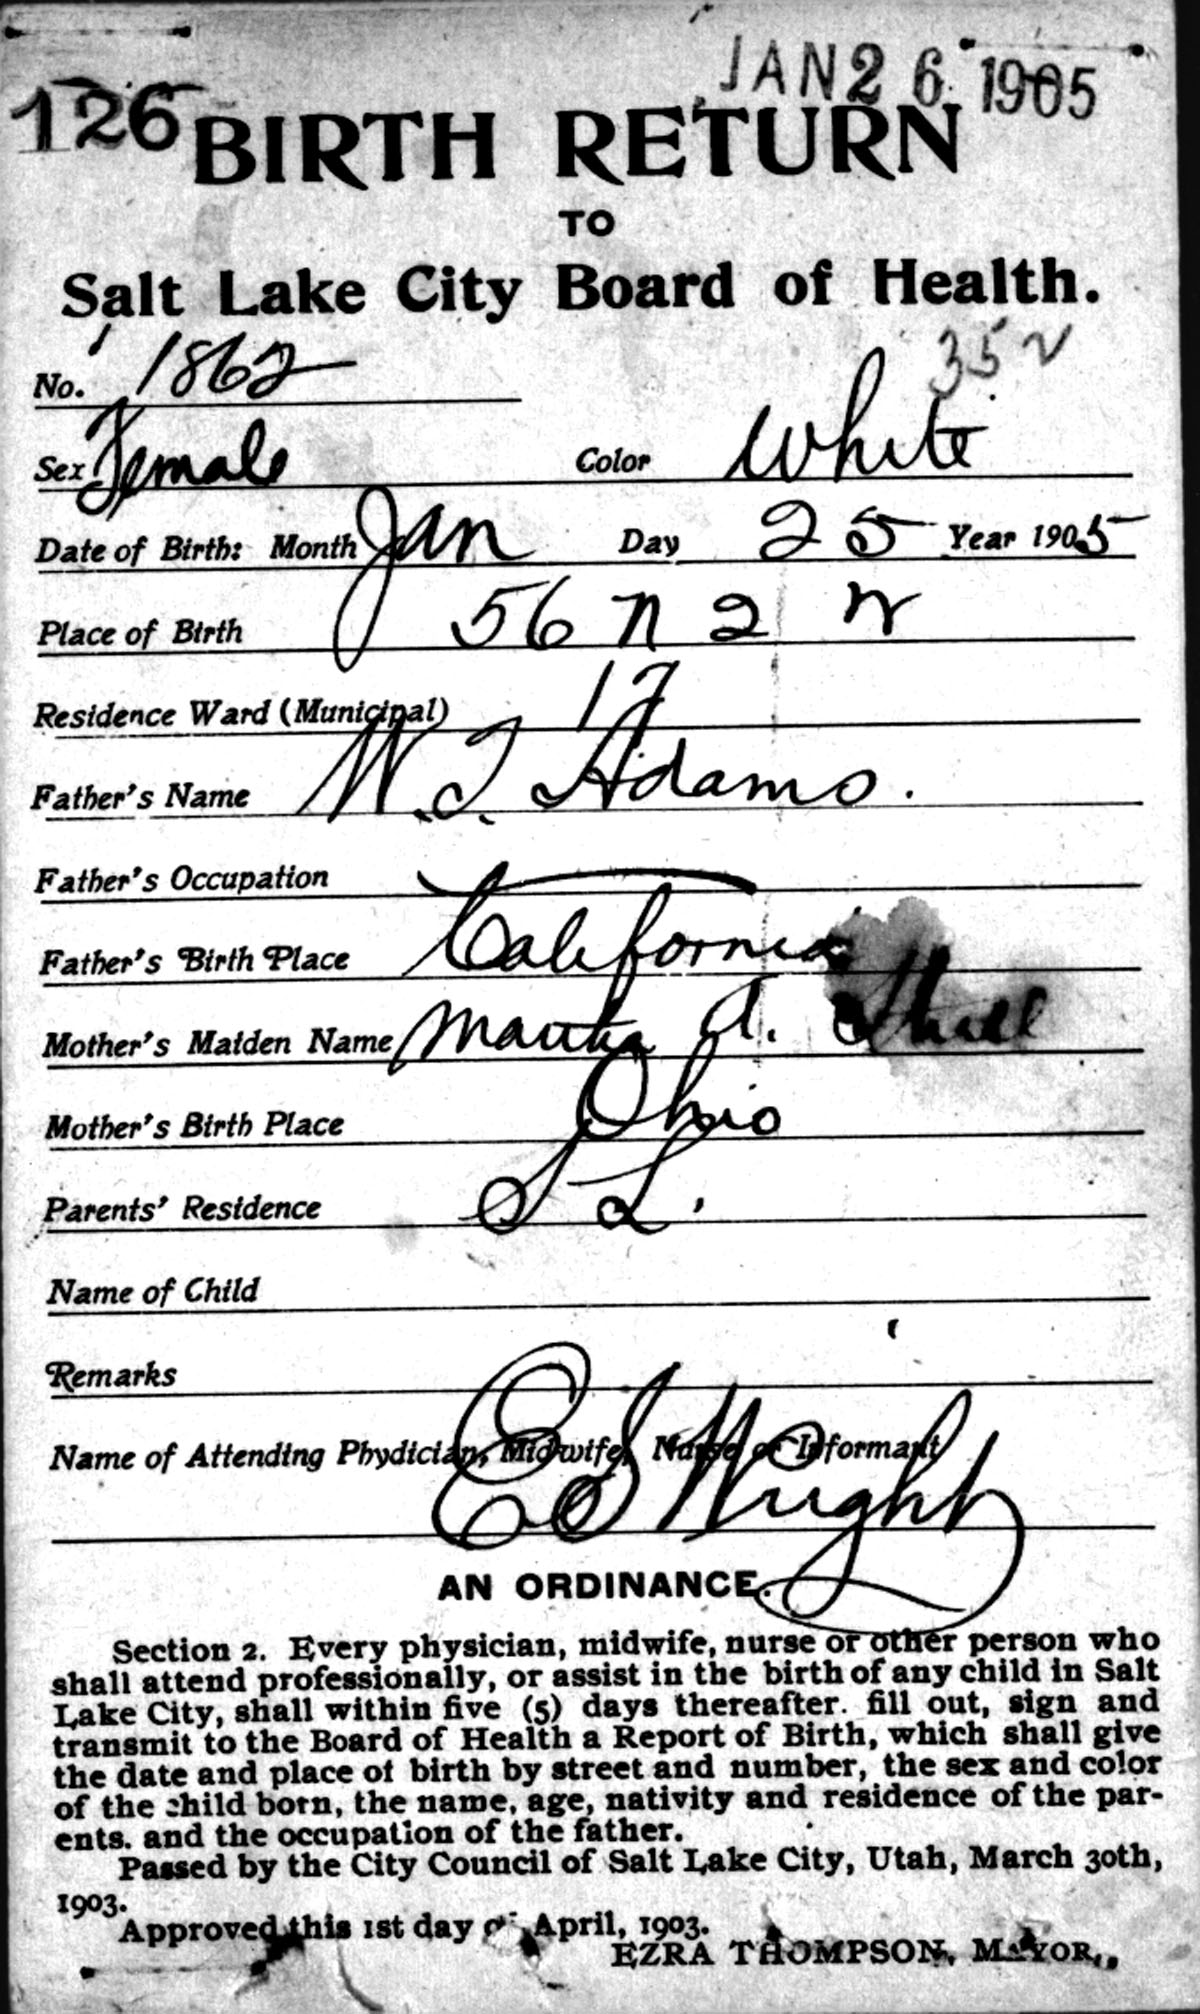 JAN 26 1905
126
BIRTH RETURN
TO
Salt Lake City Board of Health.
352
No. 1862
Sex Female Color White
Date of Birth: Month Jan Day 25 Year 1905
Place of Birth 56 N 2 W
Residence Ward (Municipal) 17
Father's Name W. T. Adams.
Father's Occupation
Father's Birth Place California
Mother's Maiden Name Martha A.
Mother's Birth Place Ohio
Parents' Residence S L.
Name of Child
Remarks
Name of Attending Phydician, Midwife, Nurse or Informant
E S Wright
AN ORDINANCE.
Section 2. Every physician, midwife, nurse or other person who
shall attend professionally, or assist in the birth of any child in Salt
Lake City, shall within five (5) days thereafter. fill out, sign and
transmit to the Board of Health a Report of Birth, which shall give
the date and place of birth by street and number, the sex and color
of the child born, the name, age, nativity and residence of the par-
ents. and the occupation of the father.
Passed by the City Council of Salt Lake City, Utah, March 30th,
1903.
Approved this 1st day of April, 1903.
EZRA THOMPSON, MAYOR.